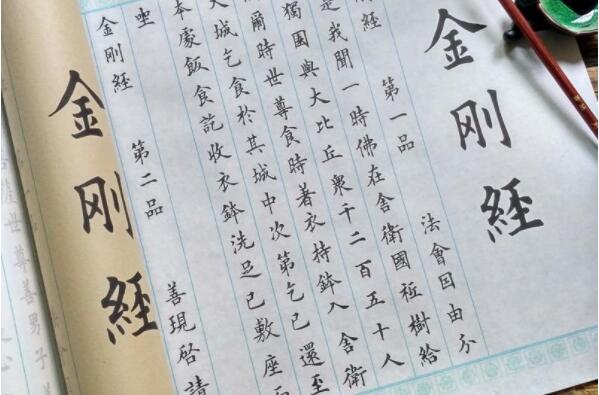 金刚經
刚經 第一品 法會因由分
是我聞一時佛在舍衛國祗樹給
獨園與大比丘衆千二百五十人
爾時世尊食時著衣持鉢入舍衛
大城乞食於其城中次第乞已還至
本處飯食訖收衣鉢洗足已敷座而
坐
金刚經 第二品 善現啓請
金刚經
薩世尊善男子